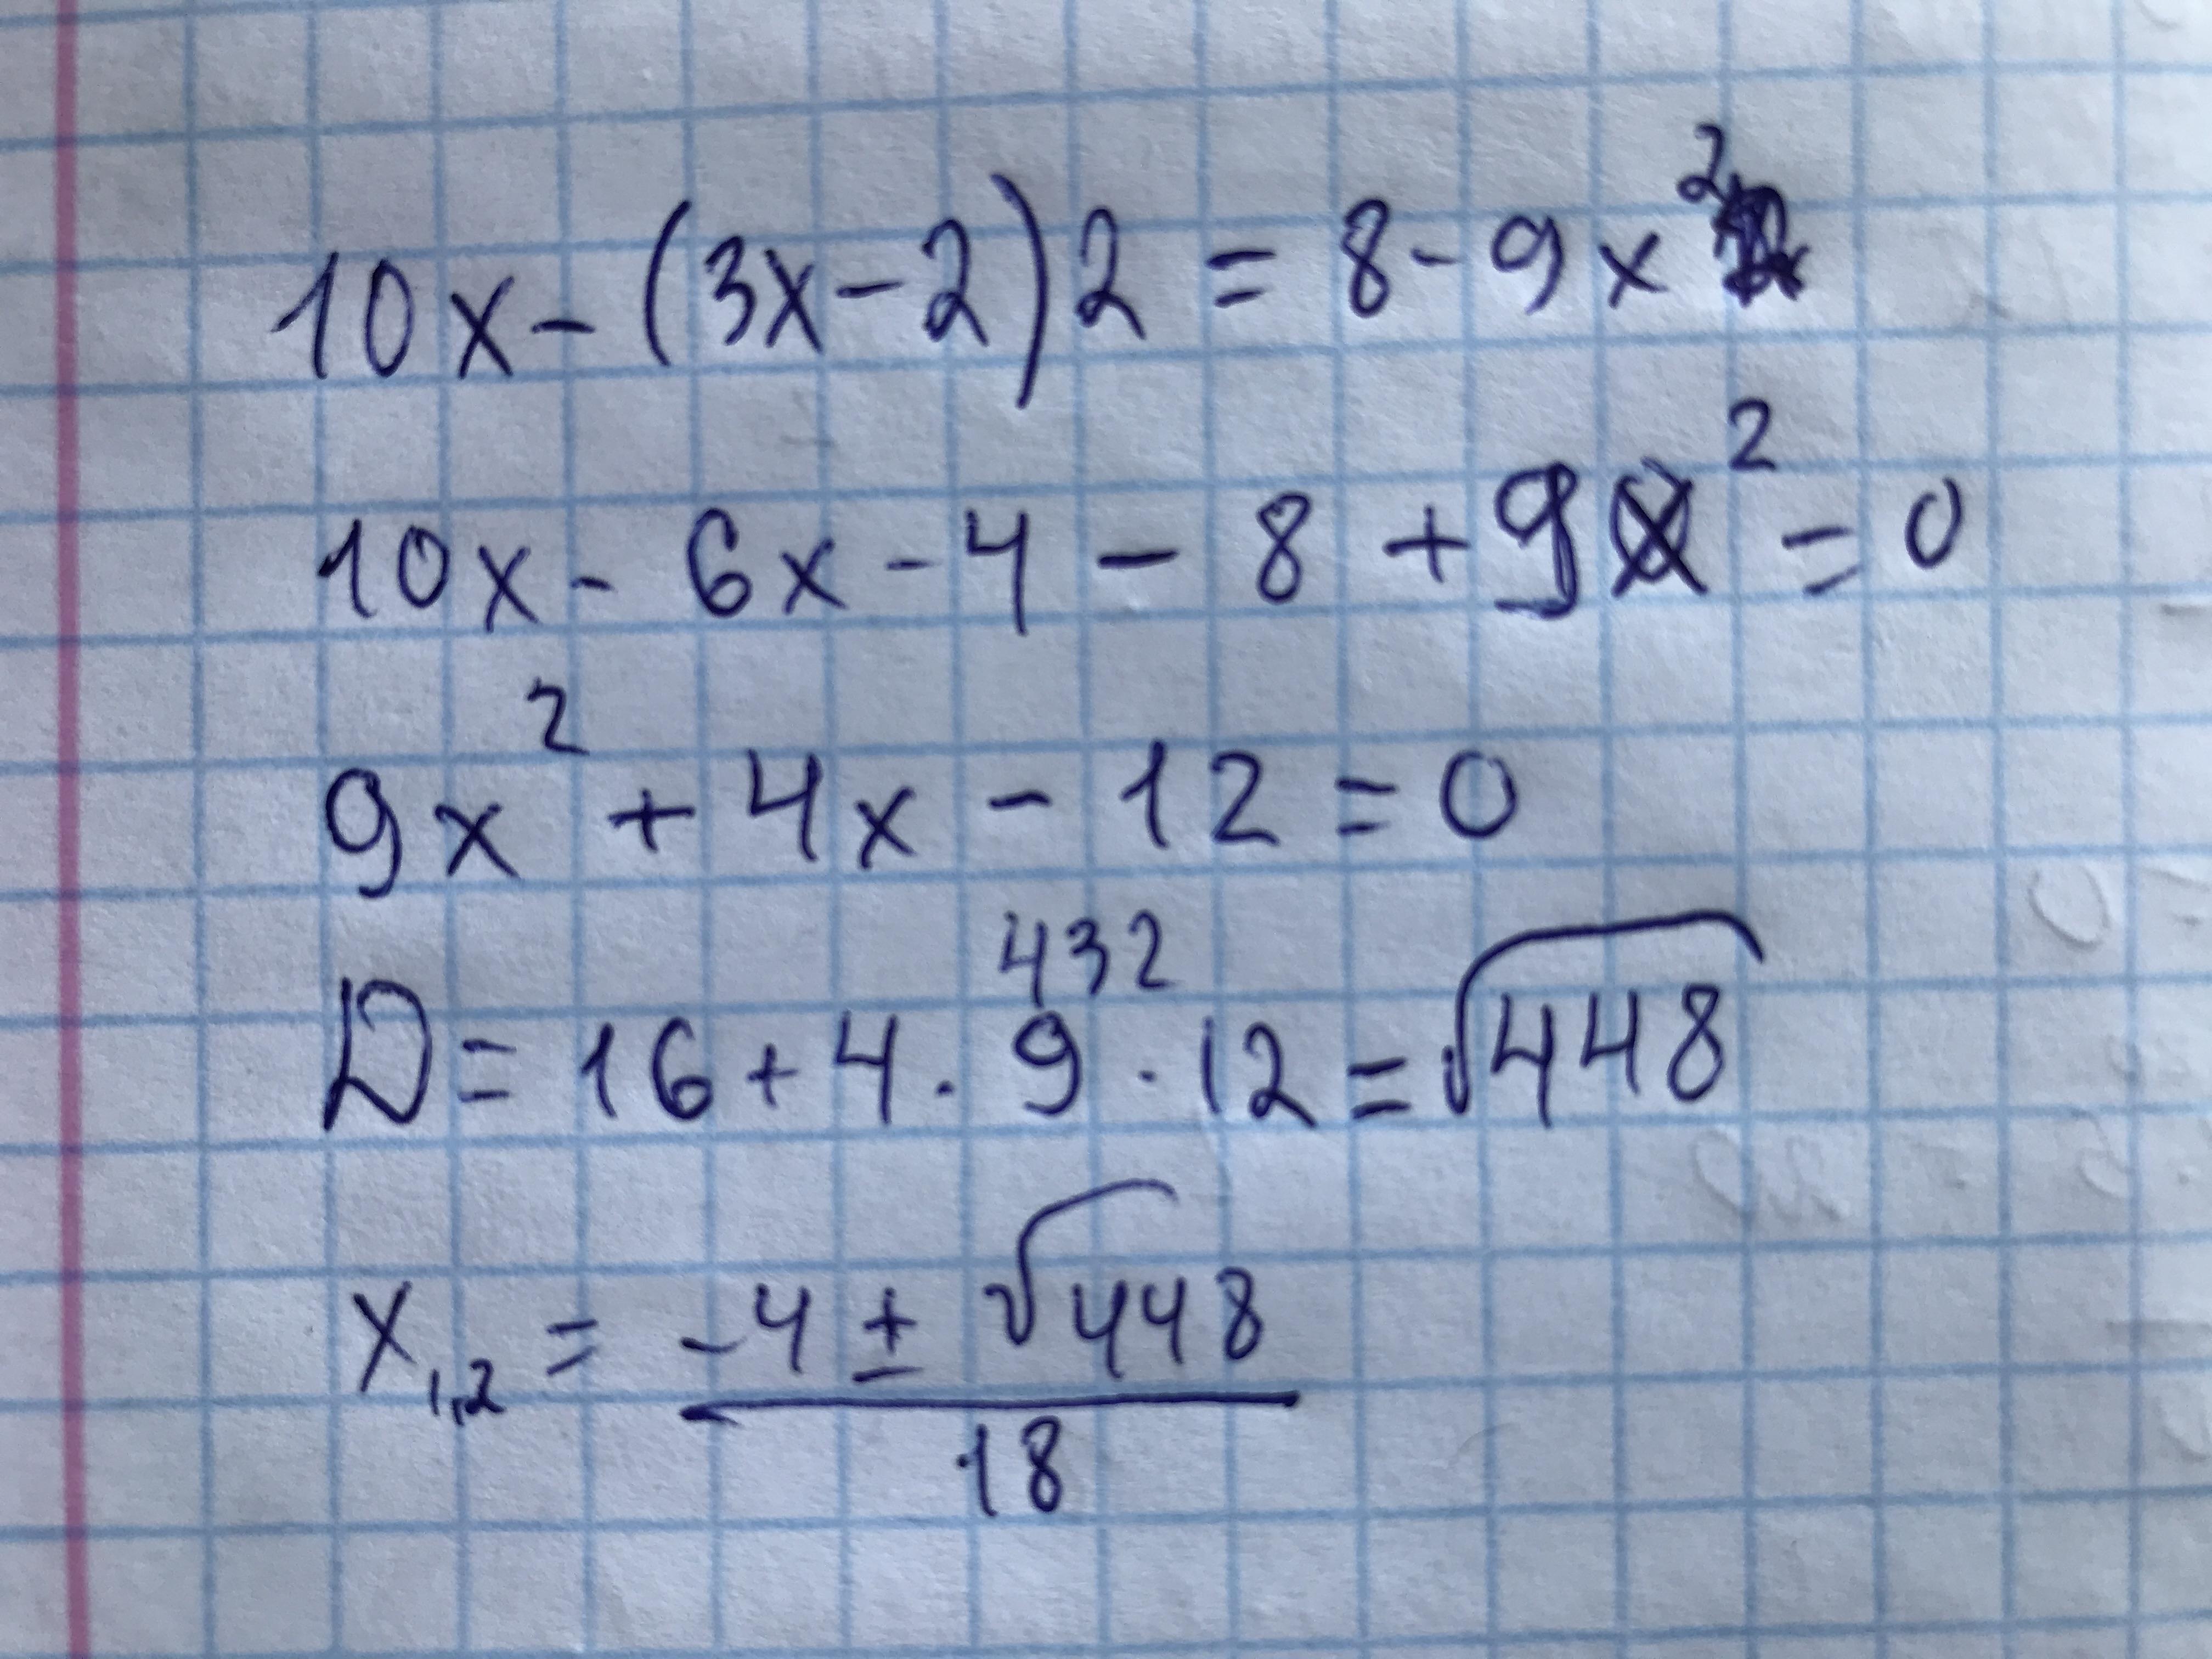 10x - (3x - 2)2 = 8 - 9x²
10x - 6x - 4 - 8 + 9x² = 0
9x² + 4x - 12 = 0
432
D = 16 + 4 · 9 · 12 = √448
x₁,₂ = (-4 ± √448) / 18